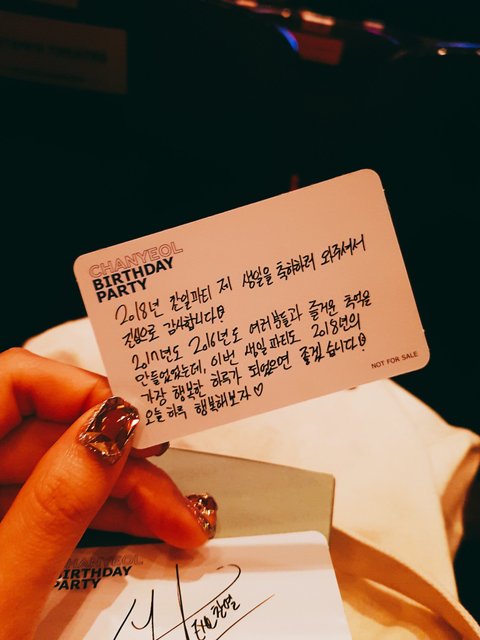 CHANYEOL
BIRTHDAY
PARTY
2018년 찬일파티 제 생일을 축하하러 와주셔서
진심으로 감사합니다!
2017년도 2016년도 여러분들과 즐거운 추억을
만들었었는데, 이번 생일 파티도 2018년의
가장 행복한 하루가 되었으면 좋겠습니다!
오늘 하루 행복해보자♡
NOT FOR SALE
CHANYEOL
BIRTHDAY
PARTY